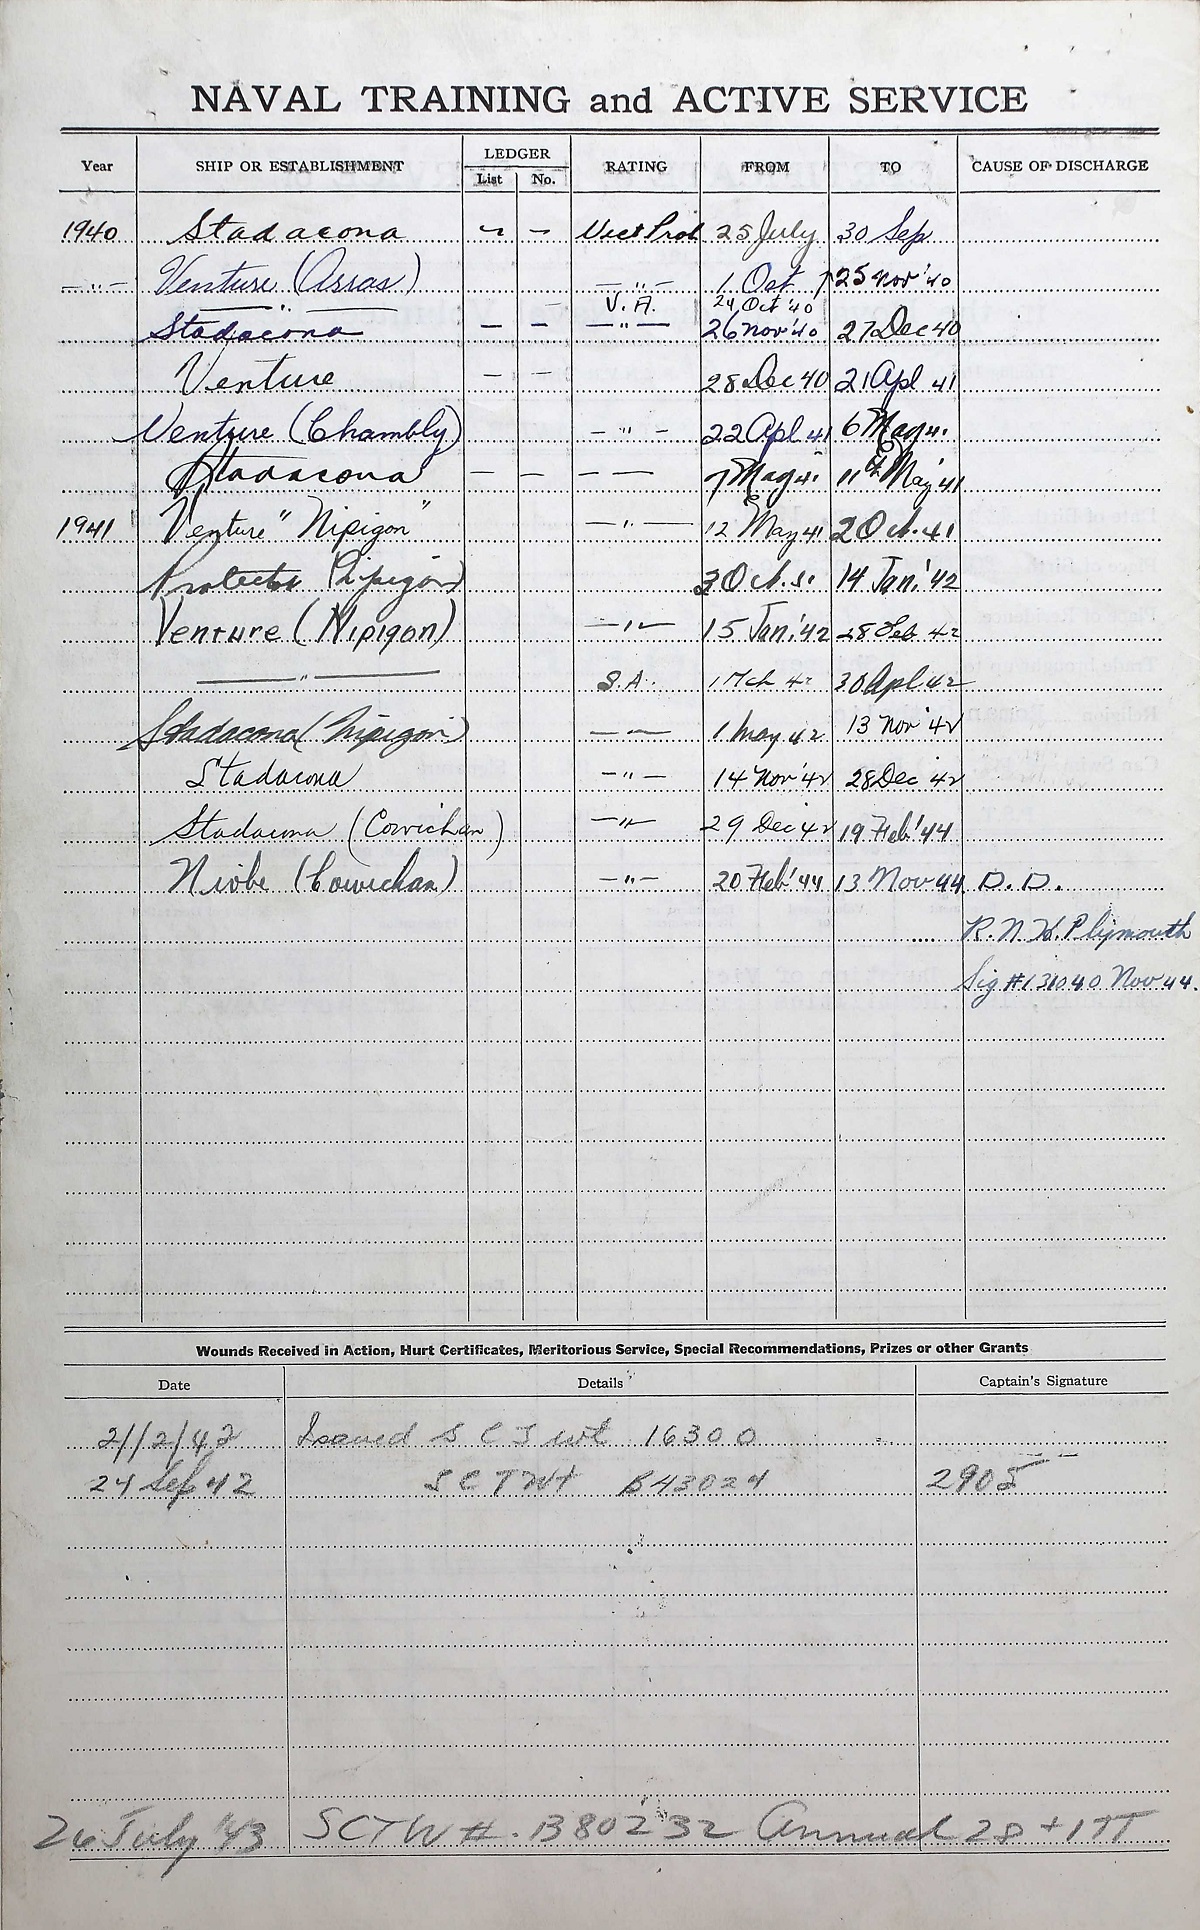 NAVAL TRAINING and ACTIVE SERVICE
Year SHIP OR ESTABLISHMENT LEDGER List No. RATING FROM TO CAUSE OF DISCHARGE
1940 Stadacona – – Vict Prob 25 July 30 Sep
– " – Venture (Arras) – " – 1 Oct 25 Nov '40
– " – V.A. 24 Oct '40
Stadacona – – – " – 26 Nov '40 27 Dec 40
Venture – – 28 Dec 40 21 Apl 41
Venture (Chambly) – " – 22 Apl 41 6 May 41
Stadacona – – – – 7 May 41 11th May 41
1941 Venture "Nipigon" – " – 12 May 41 2 Oct. 41
Protector (Nipigon) 3 Oct. 41 14 Jan. '42
Venture (Nipigon) – " – 15 Jan. '42 28 Feb 42
– " – S.A. 1 Mch 42 30 Apl 42
Stadacona (Nipigon) – " – 1 May 42 13 Nov '42
Stadacona – " – 14 Nov '42 28 Dec 42
Stadacona (Cowichan) – " – 29 Dec 42 19 Feb. '44
Niobe (Cowichan) – " – 20 Feb '44 13 Nov 44 D.D.
R.N.H. Plymouth
Sig # 131040 Nov 44.
Wounds Received in Action, Hurt Certificates, Meritorious Service, Special Recommendations, Prizes or other Grants
Date Details Captain's Signature
21/2/42 Issued S C T wt 16300
24 Sep 42 S C T Wt B43024 2905
26 July '43 SCTW #. B80232 Annual 28 + 1TT